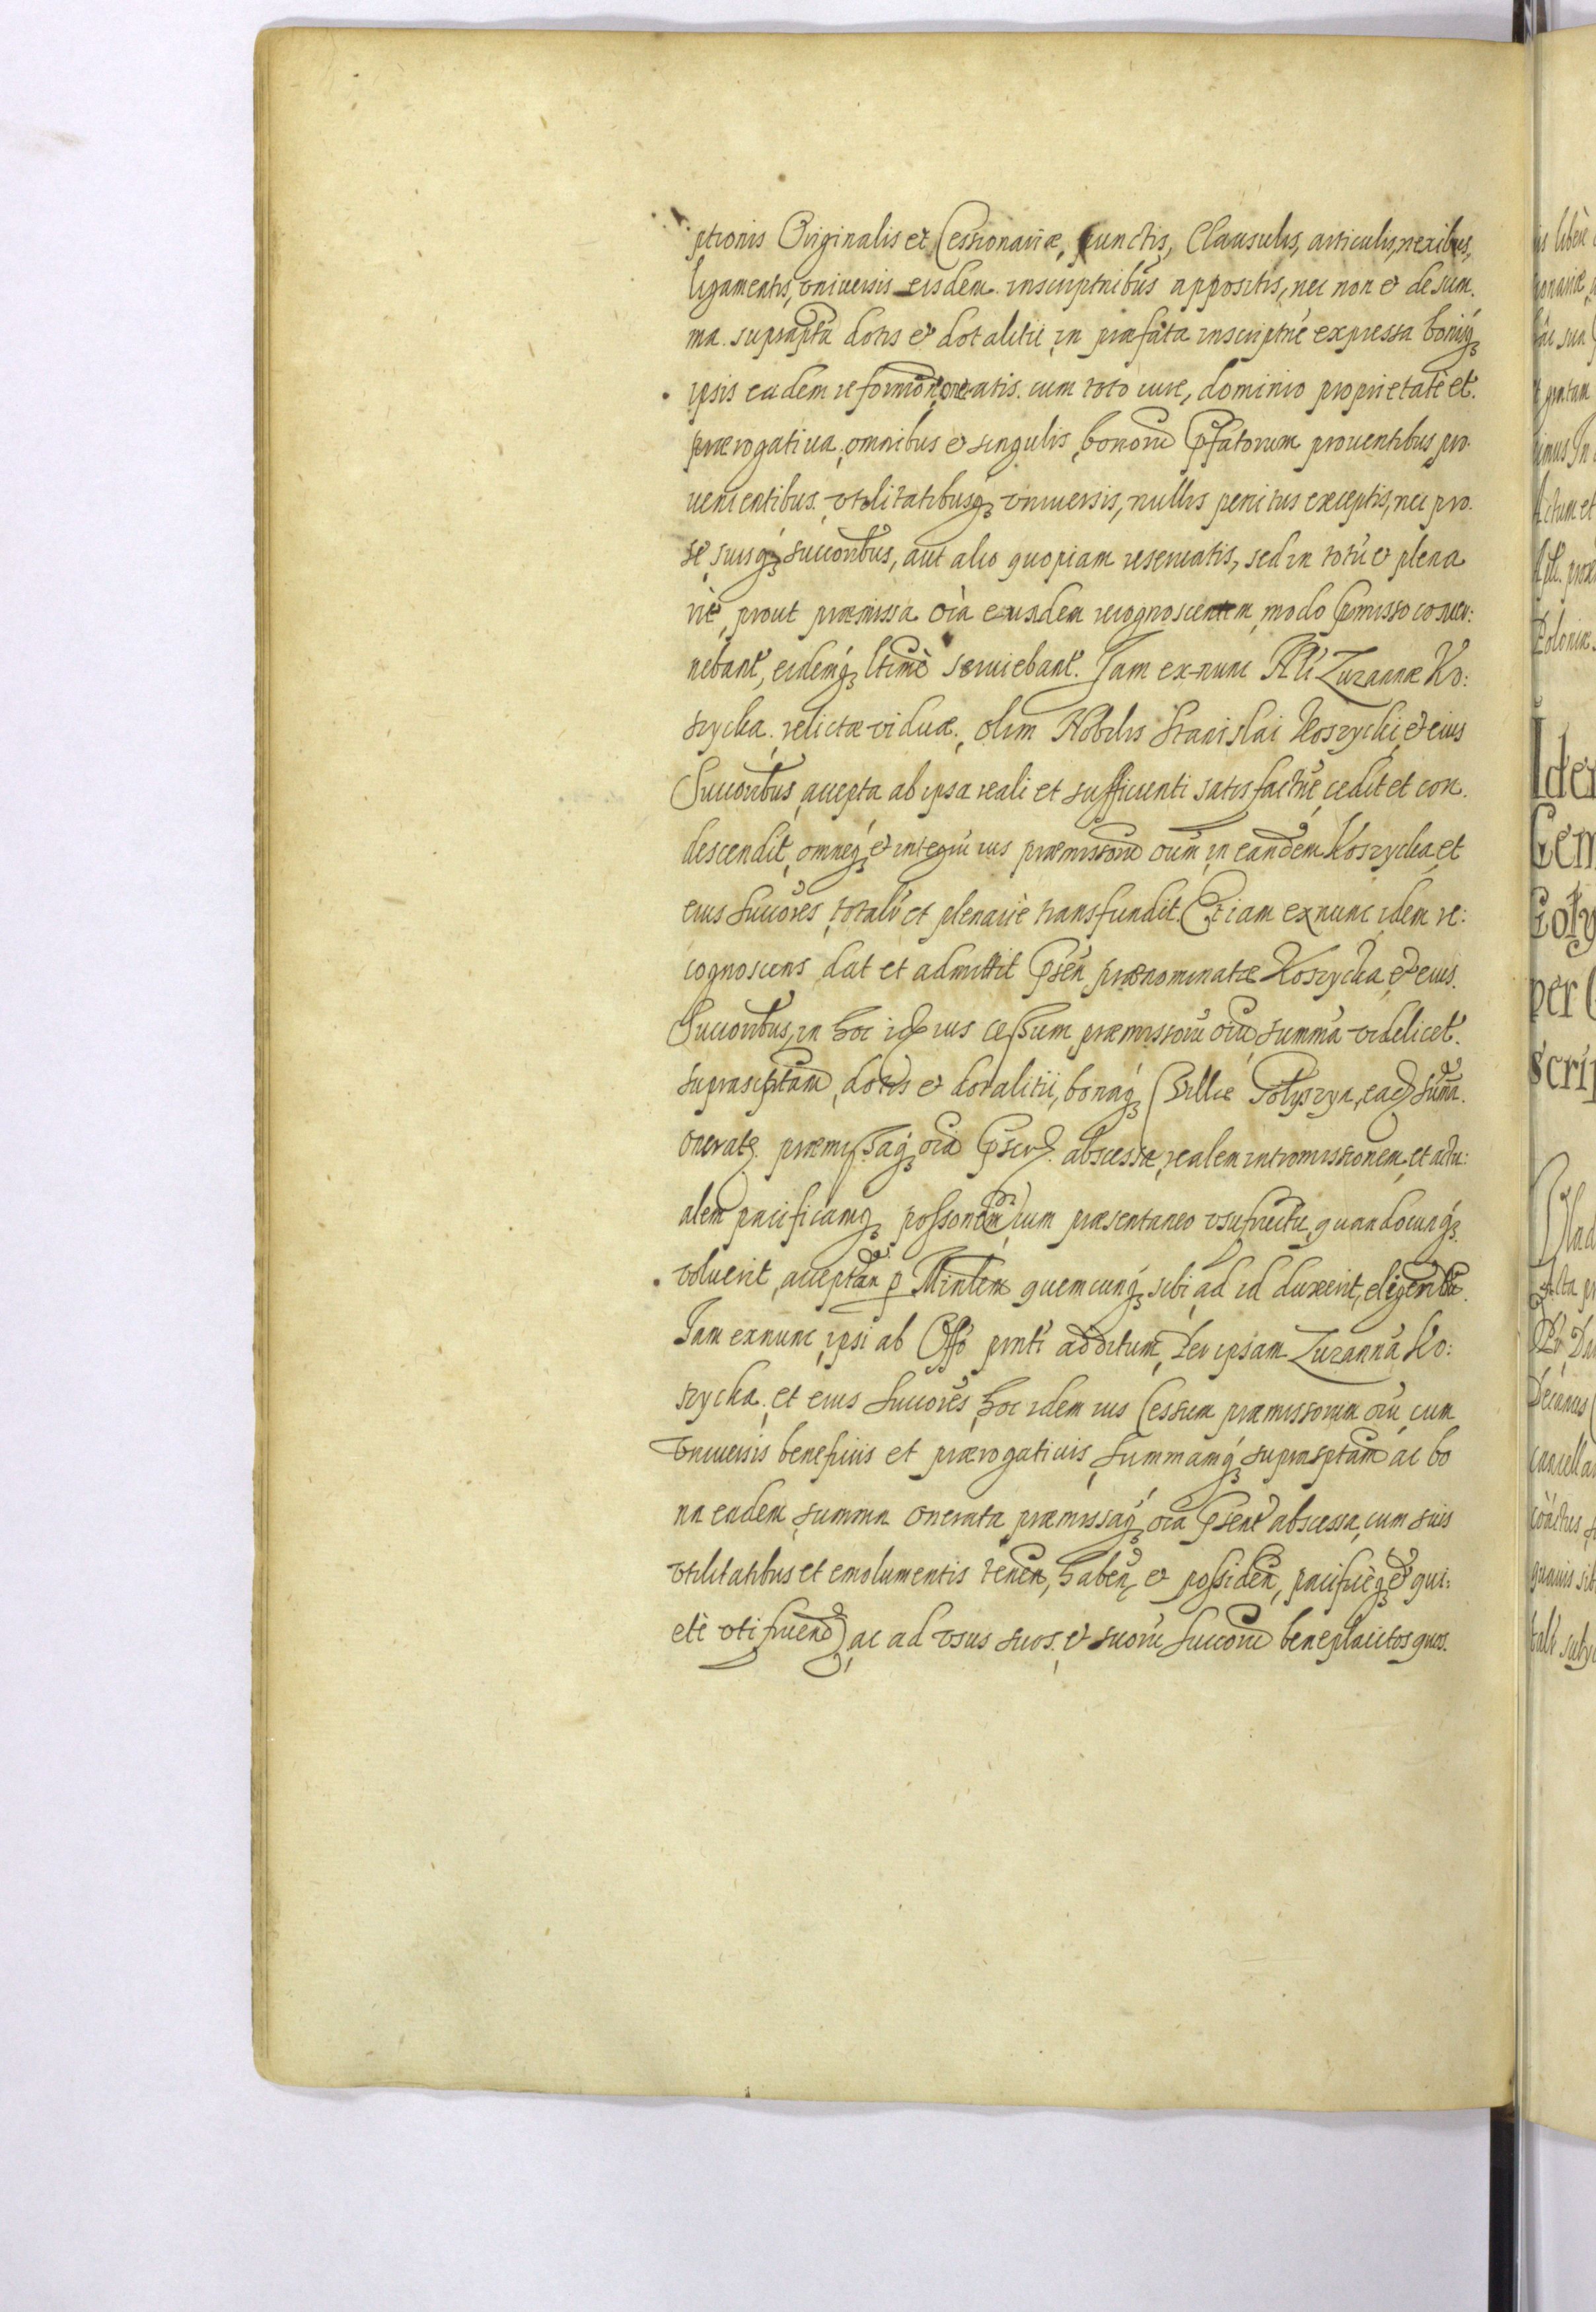 ptionis Originalis et Cessionariæ, punctis, Clausulis, articulis, nexibus,
ligamentis, vniuersis eisdem inscriptnibus appositis, nec non et de sum.
ma suprapta dotis et dotalitii in præfata inscriptne expressa bonisq3
ipsis eadem reformaon oneratis. cum toto iure, dominio proprietate et.
prærogatiua, omnibus et singulis, bonoru pfatorum prouentibus, pro.
uenientibus. vtilitatibusq3 vniuersis, nullis penitus exceptis, nec pro.
se, suisq3 succoribus, aut alio quopiam reseruatis, sed in totu et plena
rie, prout præmissa oia eundem recognoscentem, modo pmisso concer:
nebant, eidemq3 ltime seruiebant. Jam ex-nunc Nli Zuzannæ Ko:
szycka, relictæ viduæ, olim Nobilis Stanislai Koszycki, et eius
Succoribus, accepta ab ipsa reali et sufficienti satisfactne, cedit et con.
descendit, omneq3 et integru ius præmissoru oium, in eandem Koszycka, et
eius succores, totalr et plenarie transfundit. Et iam exnunc idem re:
cognoscens dat et admittit psen prænominatæ Koszycka, et eius.
Succoribus, in hoc idem ius cessum, præmissoru oiu summa videlicet.
suprascriptam, dotis et dotalitii, bonaq3 Villæ Połyszyn, ead summa.
onerata præmissaq3 oia abscessa, realem intromissionem, et actu:
alem pacificamq3 possonem, cum præsentaneo vsufructu, quandocunq3.
voluerit, acceptan p Mintlem quemcunq3 sibi ad id duxerit, eligendu.
Jam exnunc ipsi ab Offo pnti additum, Per ipsam Zuzanna Ko:
szycka, et eius succores, hoc idem ius cessum præmissorum oiu, cum
Vniuersis beneficiis et prærogatiuis, summamq3 suprasptam ac bo
na eadem summa onerata præmissaq3 oia psent abscessa, cum suis
vtilitatibus et emolumentis tenen, haben, et possiden, pacificeq3 et qui:
ete vti, fruend, ac ad vsus suos, et suoru succoru beneplacitos quos.